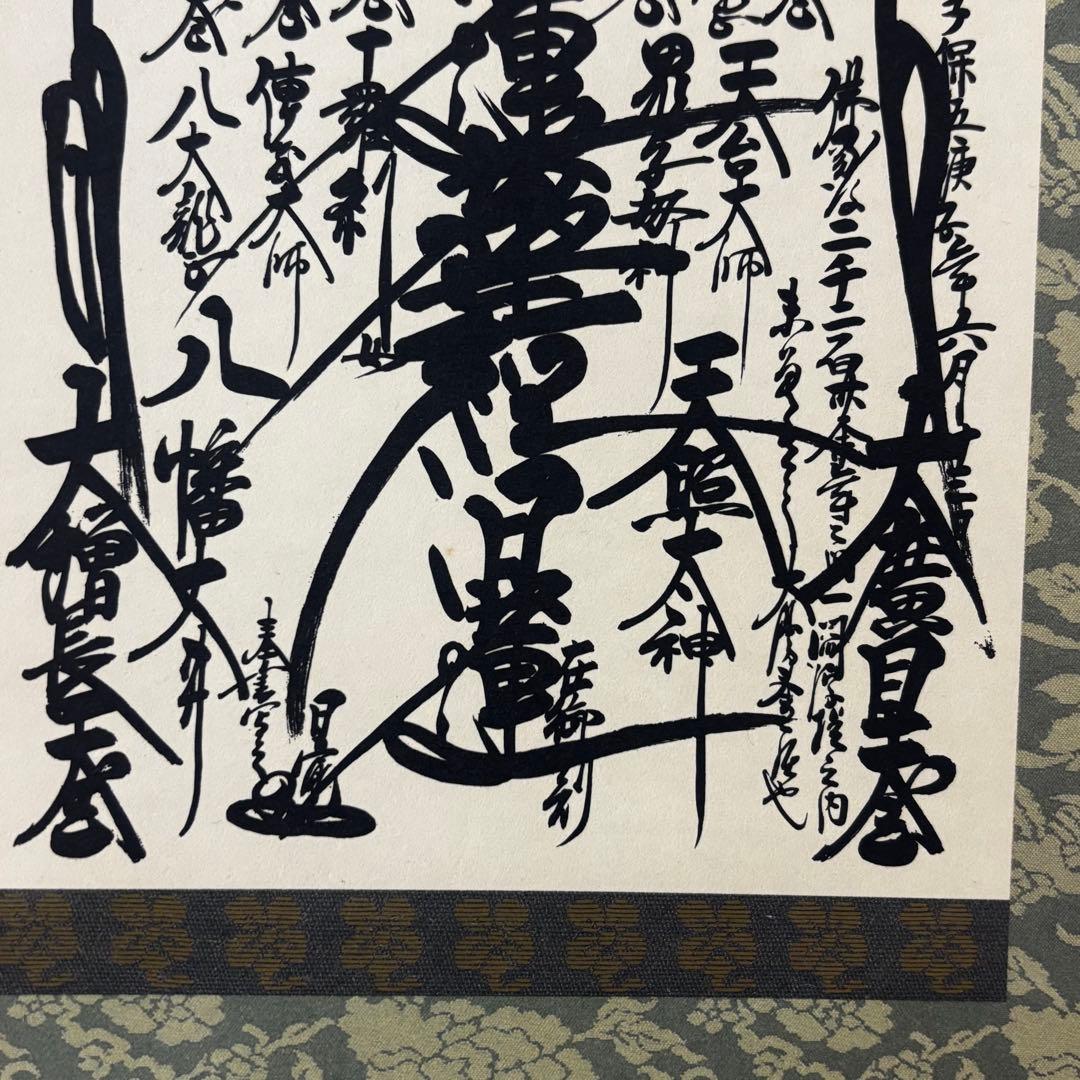 保五庚子年六月十三日
大廣目天王
佛滅後二千二百三十余年之間一閻浮提之内
未曾有之大漫荼羅也
天台大師
天照大神
鬼子母神
在御判
蓮華經
日蓮
十羅刹女
傳教大師
日寛
奉書写之
八大龍王
八幡大菩薩
大増長天王